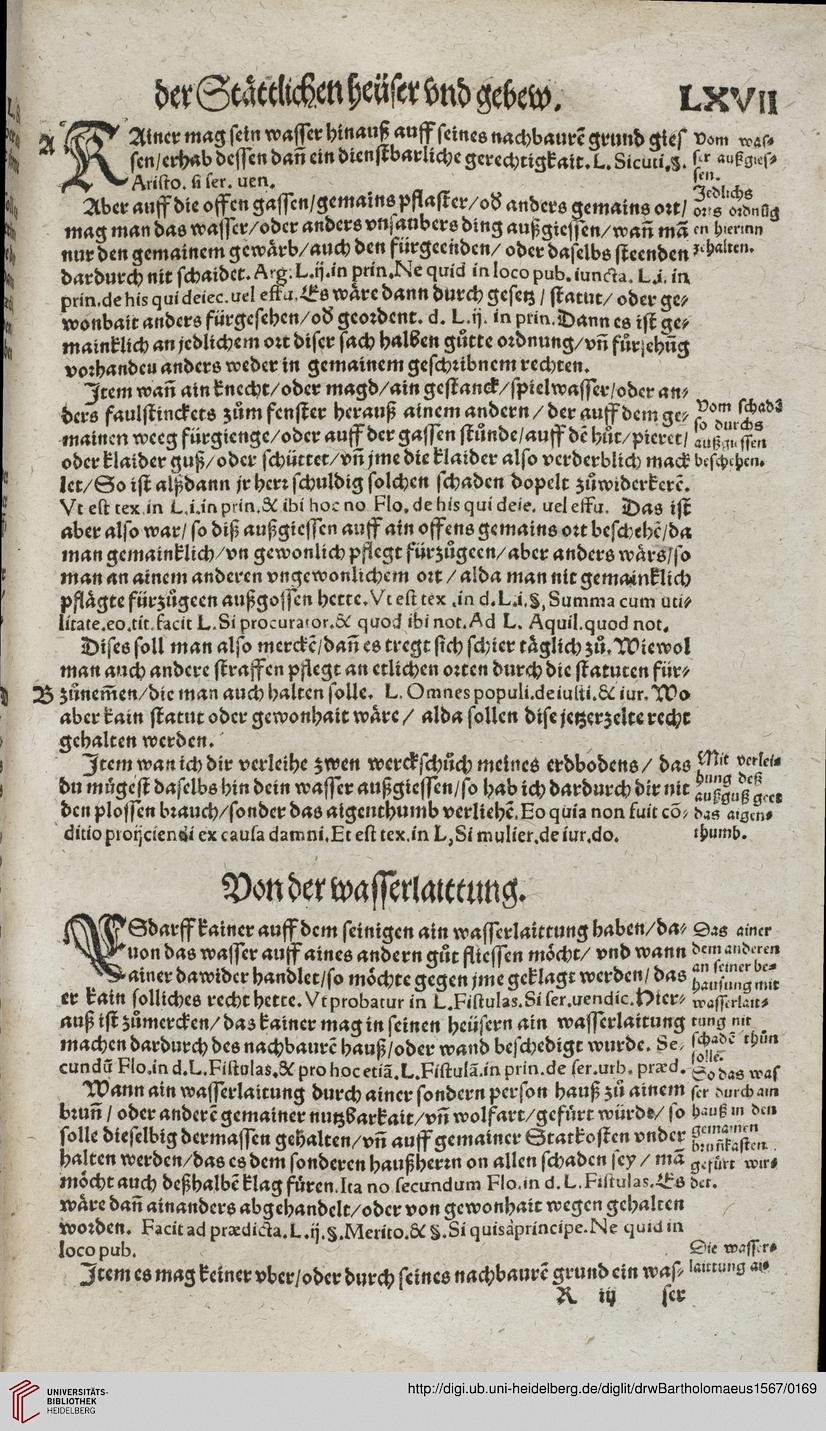 der Stättlichen heüser vnd gebew. LXVII
A KAiner mag sein wasser hinauß auff seines nachbaurẽ grund gies
sen/erhab dessen dañ ein dienstbarliche gerechtigkait. L. Sicuti.§.
Aristo. si ser. uen.
Vom was⸗
ser außgies⸗
sen.
Aber auff die offen gassen/gemains pflaster/oď anders gemains ort/
mag man das wasser/oder anders vnsaubers ding außgiessen/wañ mã
nur den gemainem gewärb/auch den fürgeenden/oder daselbs steenden
dardurch nit schaidet. Arg. L.ij.in prin. Ne quid in loco pub. iuncta. L.i. in
prin.de his qui deiec.uel effu. Es wäre dann durch gesetz / statut/ oder ge⸗
wonhait anders fürgesehen/oď geordent. d. L.ij. in prin. Dann es ist ge⸗
mainklich an jedlichem ort diser sach halben gůtte ordnung/vñ fürsehũg
vorhanden anders weder in gemainem geschribnem rechten.
Jedlichs
orts ordnũg
en hierinn
zehalten.
Item wañ ain knecht/oder magd/ain gestanck/spielwasser/oder an⸗
ders faulstinckets zům fenster herauß ainem andern / der auff dem ge⸗
mainen weeg fürgienge/oder auff der gassen stünde/auff dẽ hůt/pieret/
oder klaider guß/oder schüttet/vñ jme die klaider also verderblich mack
let/So ist alßdann jr herr schuldig solchen schaden dopelt zůwiderkerẽ.
Vt est tex.in L.i.in prin.& ibi hoc no Flo. de his qui deie. uel effu. Das ist
aber also war/ so diß außgiessen auff ain offens gemains ort beschehẽ/da
man gemainklich/vn gewonlich pflegt fürzůgeen/aber anders wärs/so
man an ainem anderen vngewonlichem ort / alda man nit gemainklich
pflägte fürzůgeen außgossen hette. Vt est tex .in d.L.i.§, Summa cum uti⸗
litate.eo.tit.facit L.Si procurator.& quod ibi not.Ad L. Aquil.quod not.
Vom schadẽ
so durchs
außgiessen
beschehen.
Dises soll man also merckẽ/dañ es tregt sich schier täglich zů. Wiewol
man auch andere straffen pflegt an etlichen orten durch die statuten für⸗
B zůnem̃en/die man auch halten solle. L. Omnes populi.de iusti.& iur. Wo
aber kain statut oder gewonhait wäre / alda sollen dise jetzerzelte recht
gehalten werden.
Item wan ich dir verleihe zwen werckschůch meines erdbodens / das
du mügest daselbs hin dein wasser außgiessen/so hab ich dardurch dir nit
den plossen brauch/sonder das aigenthumb verliehẽ. Eo quia non fuit cõ⸗
ditio proijciendi ex causa damni. Et est tex.in L, Si mulier.de iur.do.
Mit verlei⸗
hung deß
außguß geet
das aigen⸗
thumb.
Von der wasserlaittung.
ES darff kainer auff dem seinigen ain wasserlaittung haben/da⸗
uon das wasser auff aines andern gůt fliessen möcht/ vnd wann
ainer dawider handlet/so möchte gegen jme geklagt werden/ das
er kain solliches recht hette. Vt probatur in L. Fistulas. Si ser.uendic. Hier⸗
auß ist zůmercken/ das kainer mag in seinen heüsern ain wasserlaitung
machen dardurch des nachbaurẽ hauß/oder wand beschedigt wurde. Se⸗
cundũ Flo.in d.L.Fistulas.& pro hoc etiã.L.Fistulã.in prin.de ser.urb. præd.
Das ainer
dem anderen
an seiner be⸗
hausung mit
wasserlait⸗
tung nit
schadẽ thůn
solle.
Wann ain wasserlaitung durch ainer sondern person hauß zů ainem
brunñ / oder anderẽ gemainer nutzbarkait/vñ wolfart/gefürt würde/ so
solle dieselbig dermassen gehalten/vñ auff gemainer Statkosten vnder
halten werden/das es dem sonderen haußherrn on allen schaden sey / mã
möcht auch deßhalbẽ klag füren. Ita no secundum Flo.in d.L. Fistulas. Es
wäre dañ ainanders abgehandelt/oder von gewonhait wegen gehalten
worden. Facit ad prædicta.L.ij.§.Merito.& §.Si quis à principe. Ne quid in
loco pub.
So das was
ser durch ain
hauß in den
gemainen
brunñkasten
gefürt wir⸗
det.
Item es mag keiner vber/oder durch seines nachbaurẽ grund ein was⸗
Die wasser⸗
laittung au⸗
R iij ser
UNIVERSITÄTS-
BIBLIOTHEK
HEIDELBERG
http://digi.ub.uni-heidelberg.de/diglit/drwBartholomaeus1567/0169